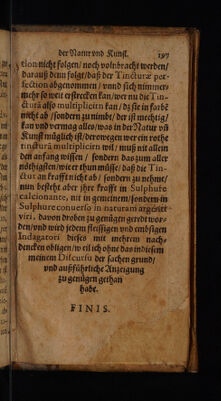 der Natur vnd Kunst. 197
tion nicht folgen/ noch volnbracht werden/
darauß denn folgt/ daß der Tincturæ per-
fection abgenommen/ vnnd sich nimmer-
mehr so weit erstrecken kan/ wer nu die Tin-
cturā also multiplicirn kan/ dz sie in farbē
nicht ab/ sondern zu nimbt/ der ist mechtig/
kan vnd vermag alles/ was in der Natur vñ
Kunst müglich ist/ derowegen wer ein rechte
tincturā multiplicirn wil/ muß nit allein
den anfang wissen/ sondern das zum aller
nöthigsten/ wie er thun müsse/ daß die Tin-
ctur an krafft nicht ab/ sondern zu nehme/
nun bestehet aber jhre krafft in Sulphure
calcionante, nit in gemeinem/ sondern in
Sulphure conuerso in naturam argēti
viri, davon droben zu genügen geredt wor-
den/ vnd wird jedem fleissigen vnd embsigen
Indagatori dieses mit mehrem nach-
dencken obligen/ weil ich ohne das in diesem
meinem Discursu der sachen grund/
vnd außführliche Anzeigung
zu genügen gethan
habe.
FINIS.